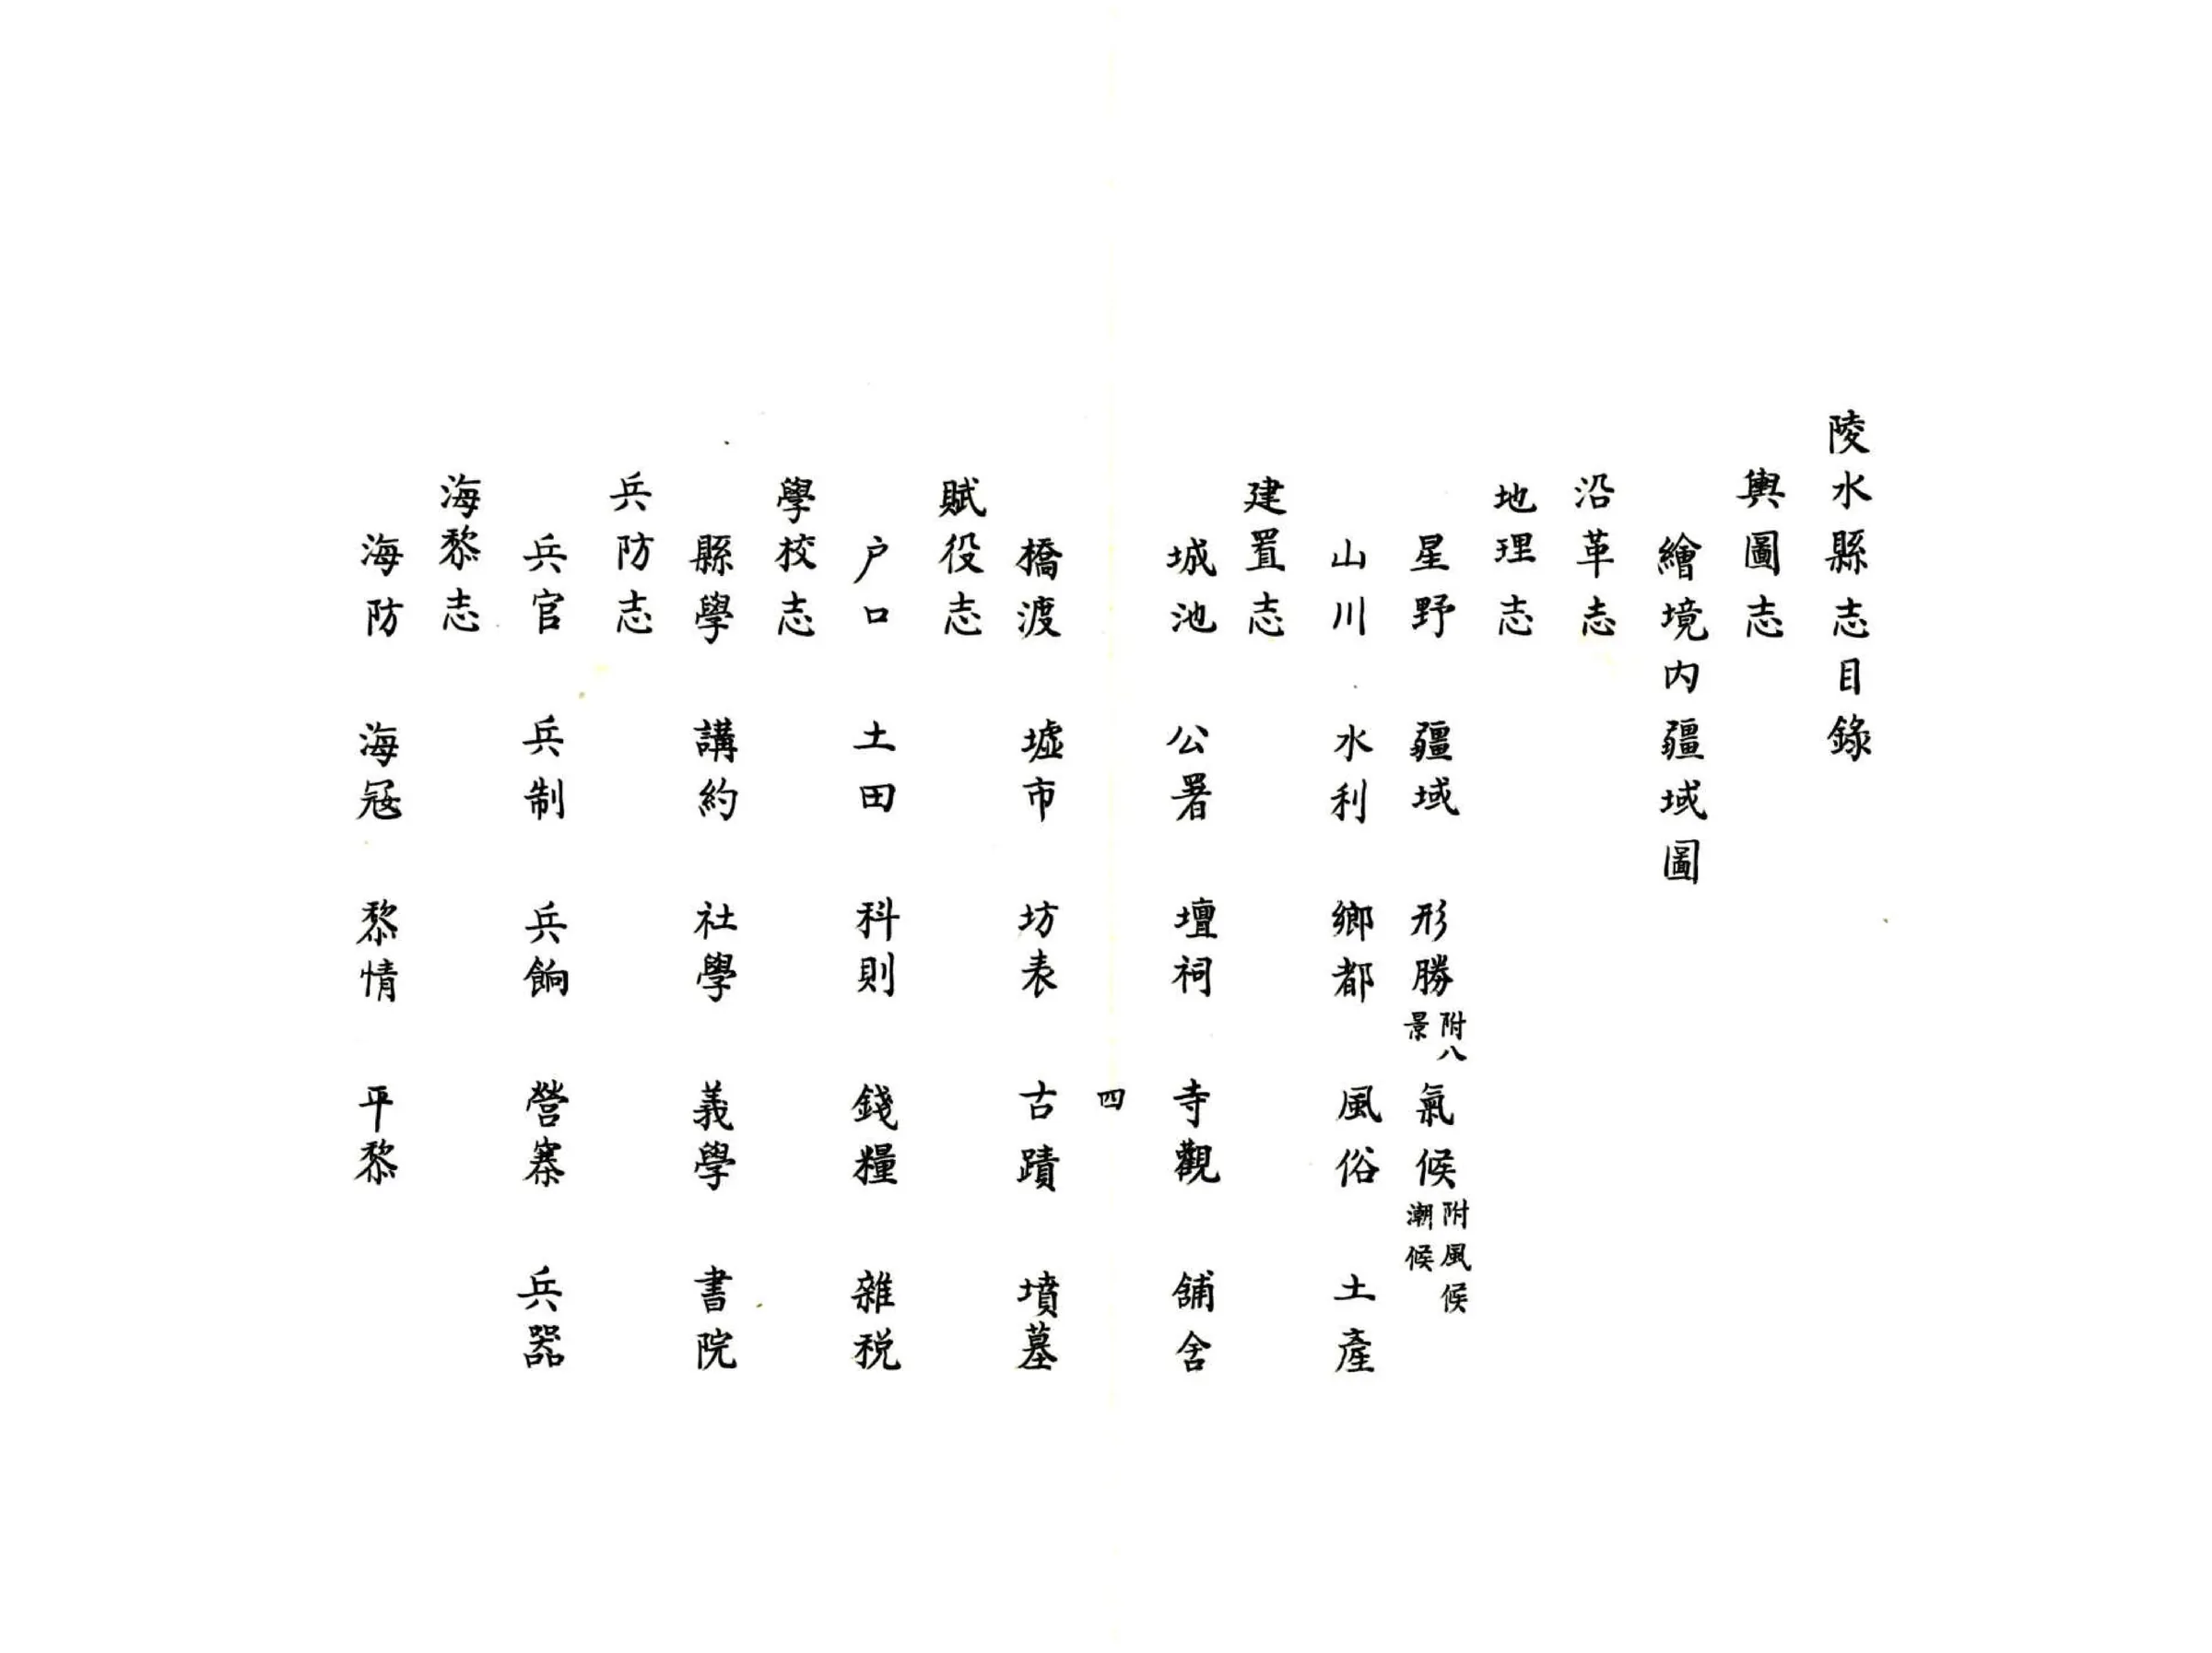 陵水縣志目錄
輿圖志
繪境内疆域圖
沿革志
地理志
星野　疆域　形勝附八景　氣候附風候潮候
山川　水利　鄉都　風俗　土產
建置志
城池　公署　壇祠　寺觀　舖舍
四
橋渡　墟市　坊表　古蹟　墳墓
賦役志
户口　土田　科則　錢糧　雜税
學校志
縣學　講約　社學　義學　書院
兵防志
兵官　兵制　兵餉　營寨　兵器
海黎志
海防　海冦　黎情　平黎